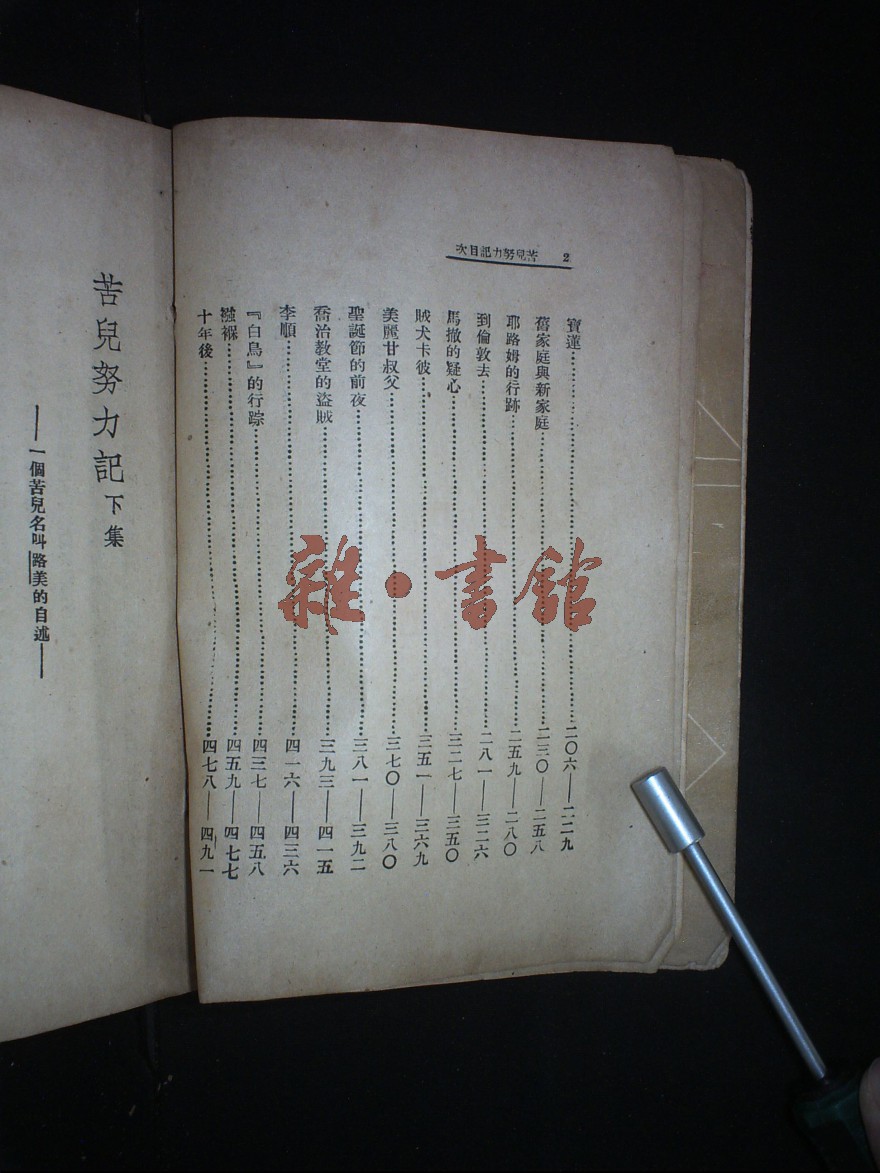 2　苦兒努力記目次
寶蓮……二〇六——二二九
舊家庭與新家庭……二三〇——二五八
耶路姆的行跡……二五九——二八〇
到倫敦去……二八一——三二六
馬撒的疑心……三二七——三五〇
賊犬卡彼……三五一——三六九
美麗甘叔父……三七〇——三八〇
聖誕節的前夜……三八一——三九二
喬治教堂的盜賊……三九三——四一五
李順……四一六——四三六
『白鳥』的行踪……四三七——四五八
襁褓……四五九——四七七
十年後……四七八——四九一
苦兒努力記下集
——一個苦兒名叫路美的自述——
雜·書館